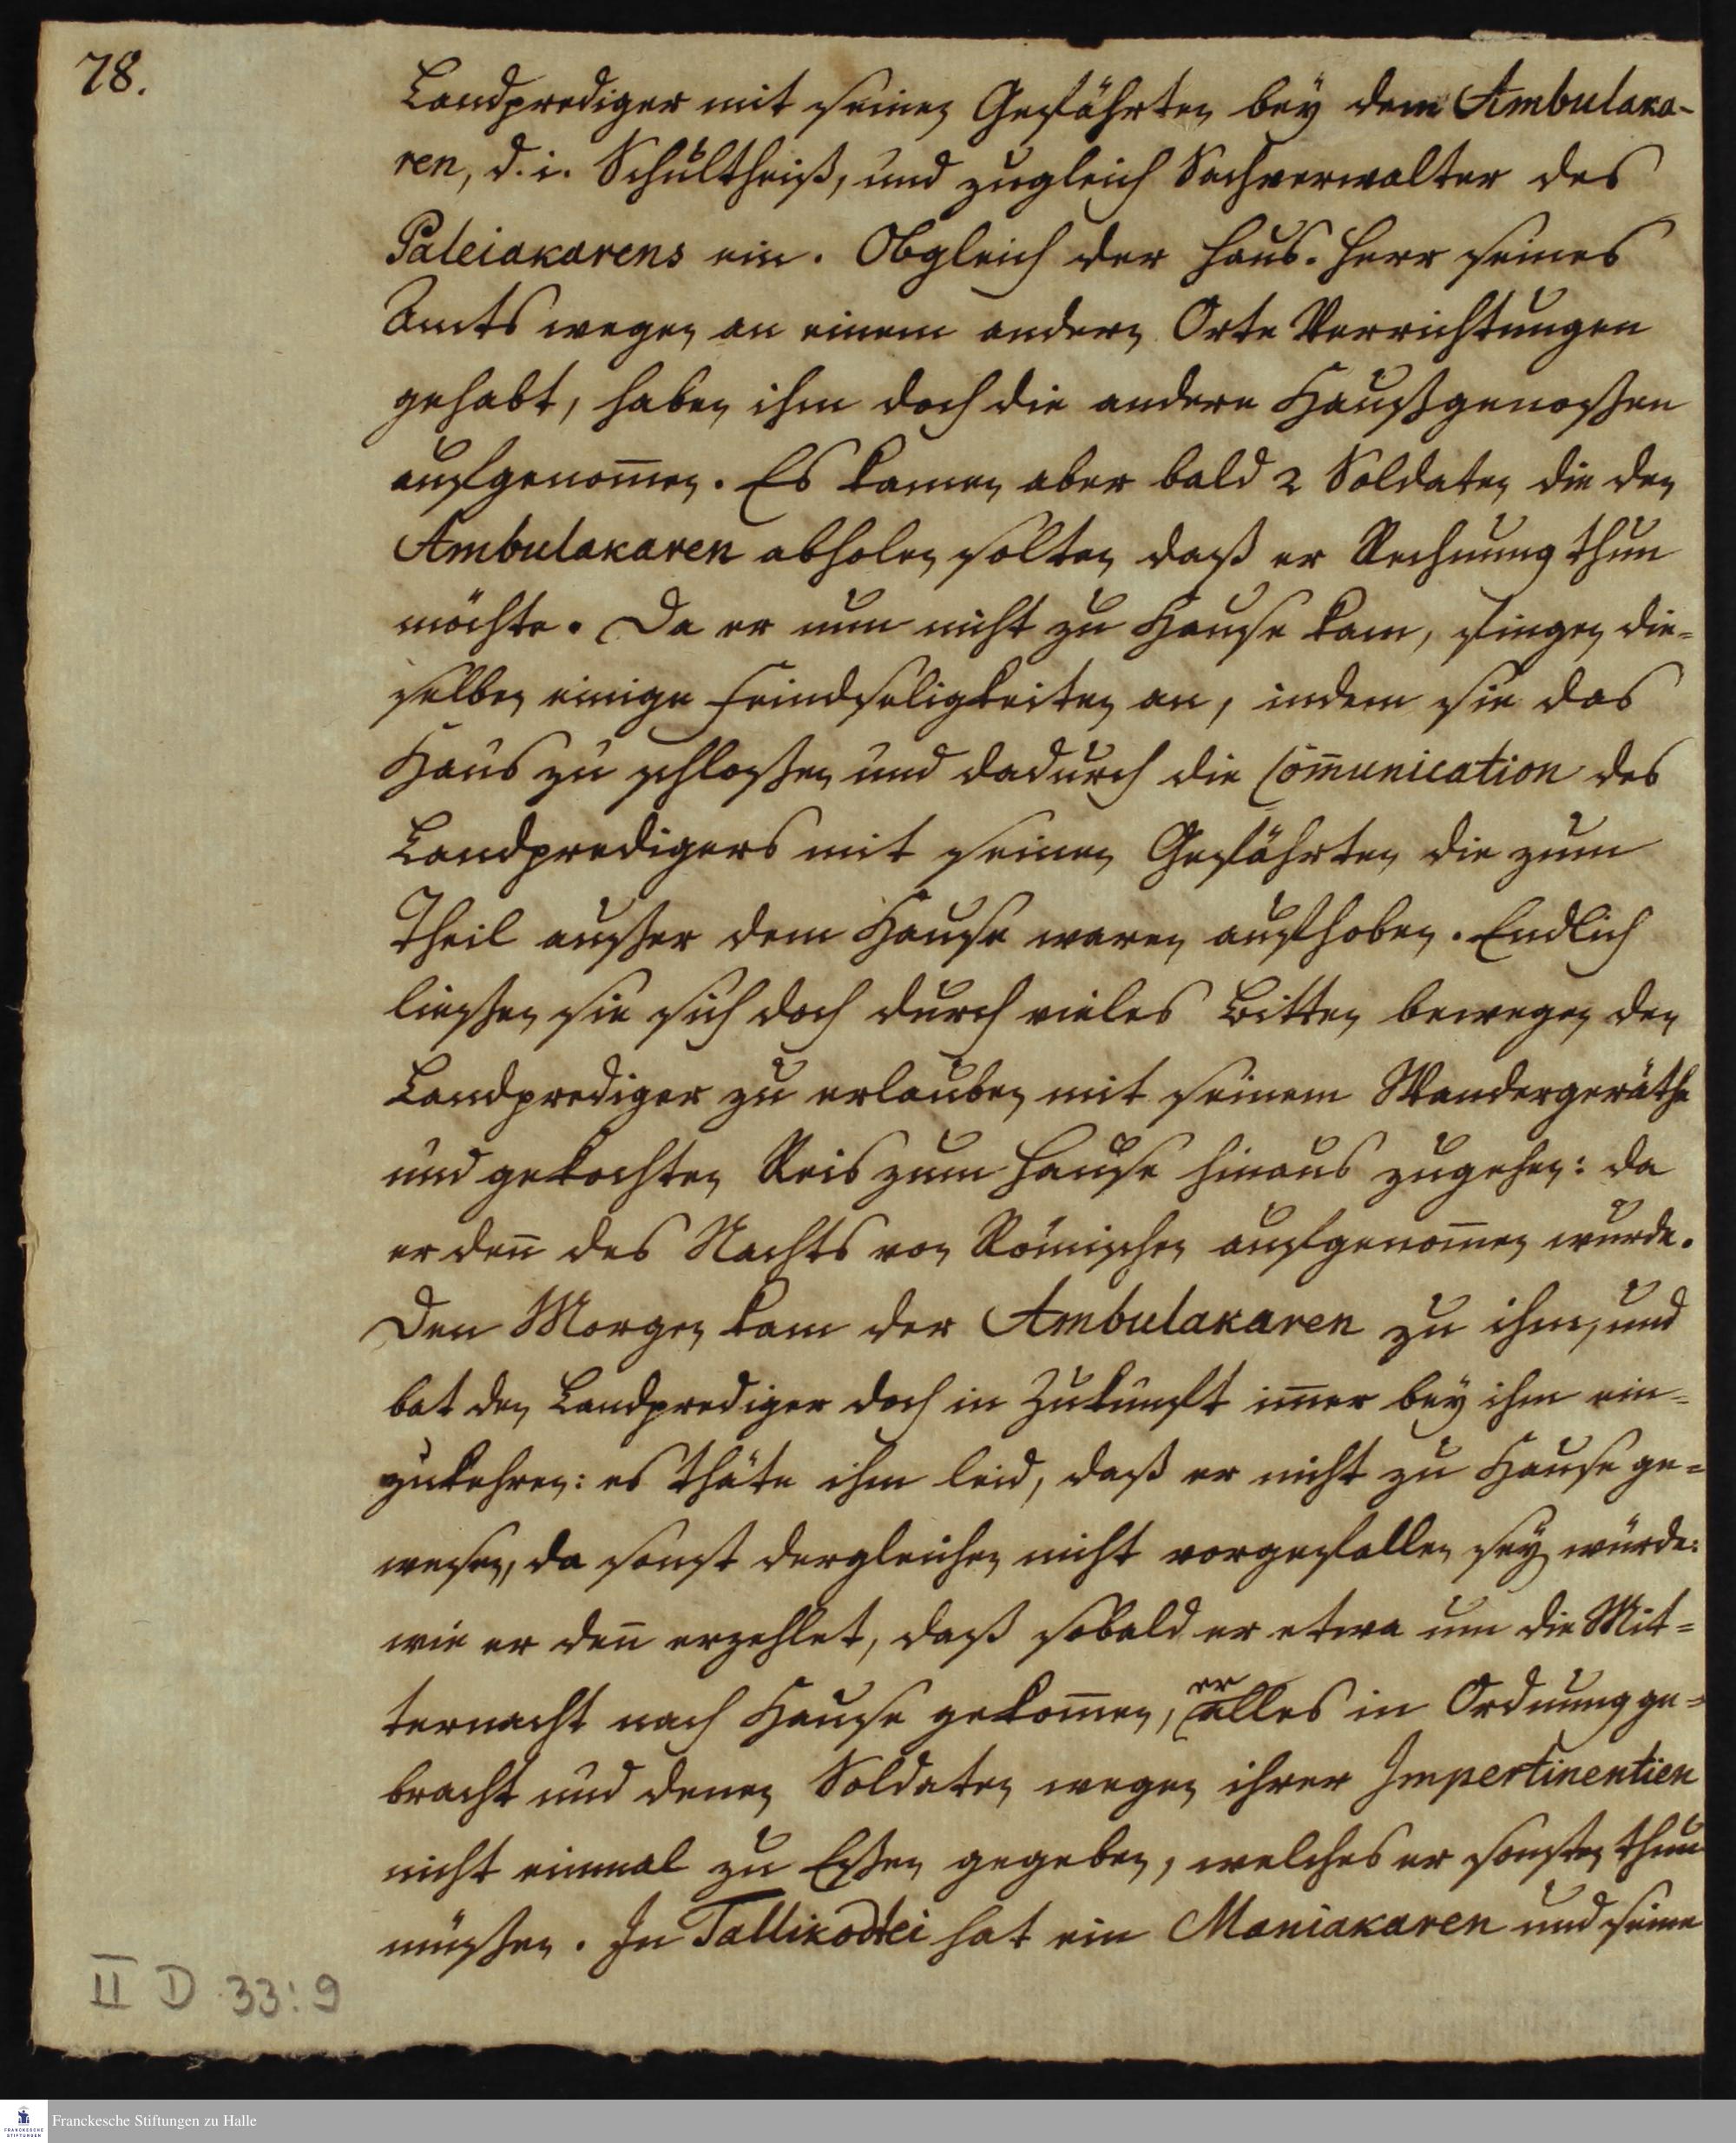 78.
Landprediger mit seinen Gefährten bey dem Ambulaka-
ren, d. i. Schultheiß, und zugleich Sachverwalter des
Paleiakarens ein. Obgleich der Haus-Herr seines
Amts wegen an einem andern Orte Verrichtungen
gehabt, haben ihm doch die andere Haußgenoßen
aufgenom̄en. Es kamen aber bald 2 Soldaten die den
Ambulakaren abholen solten daß er Rechnung thun
möchte. Da er nun nicht zu Hause kam, fingen die=
selben einige Feindseligkeiten an, indem sie das
Haus zu schloßen und dadurch die Com̄unication des
Landpredigers mit seinen Gefährten die zum
Theil außer dem Hause waren aufhoben. Endlich
ließen sie sich doch durch vieles Bitten bewegen den
Landprediger zu erlauben mit seinem Wandergeräthe
und gekochten Reis zum Hause hinaus zugehen: da
er den̄ des Nachts von Römischen aufgenom̄en wurde.
Den Morgen kam der Ambulakaren zu ihm, und
bat den Landprediger doch in Zukunft im̄er bey ihm ein=
zukehren: es thäte ihm leid, daß er nicht zu Hause ge=
wesen, da sonst dergleichen nicht vorgefallen seyn würde:
wie er den̄ erzehlet, daß sobald er etwa um die Mit=
ternacht nach Hause gekom̄en, er alles in Ordnung ge=
bracht und denen Soldaten wegen ihrer Impertinentien
nicht einmal zu Eßen gegeben, welches er sonsten thun
müßen. In Tallikodtei hat ein Maniakaren und seine
II D 33:9
Franckesche Stiftungen zu Halle
FRANCKESCHE
STIFTUNGEN